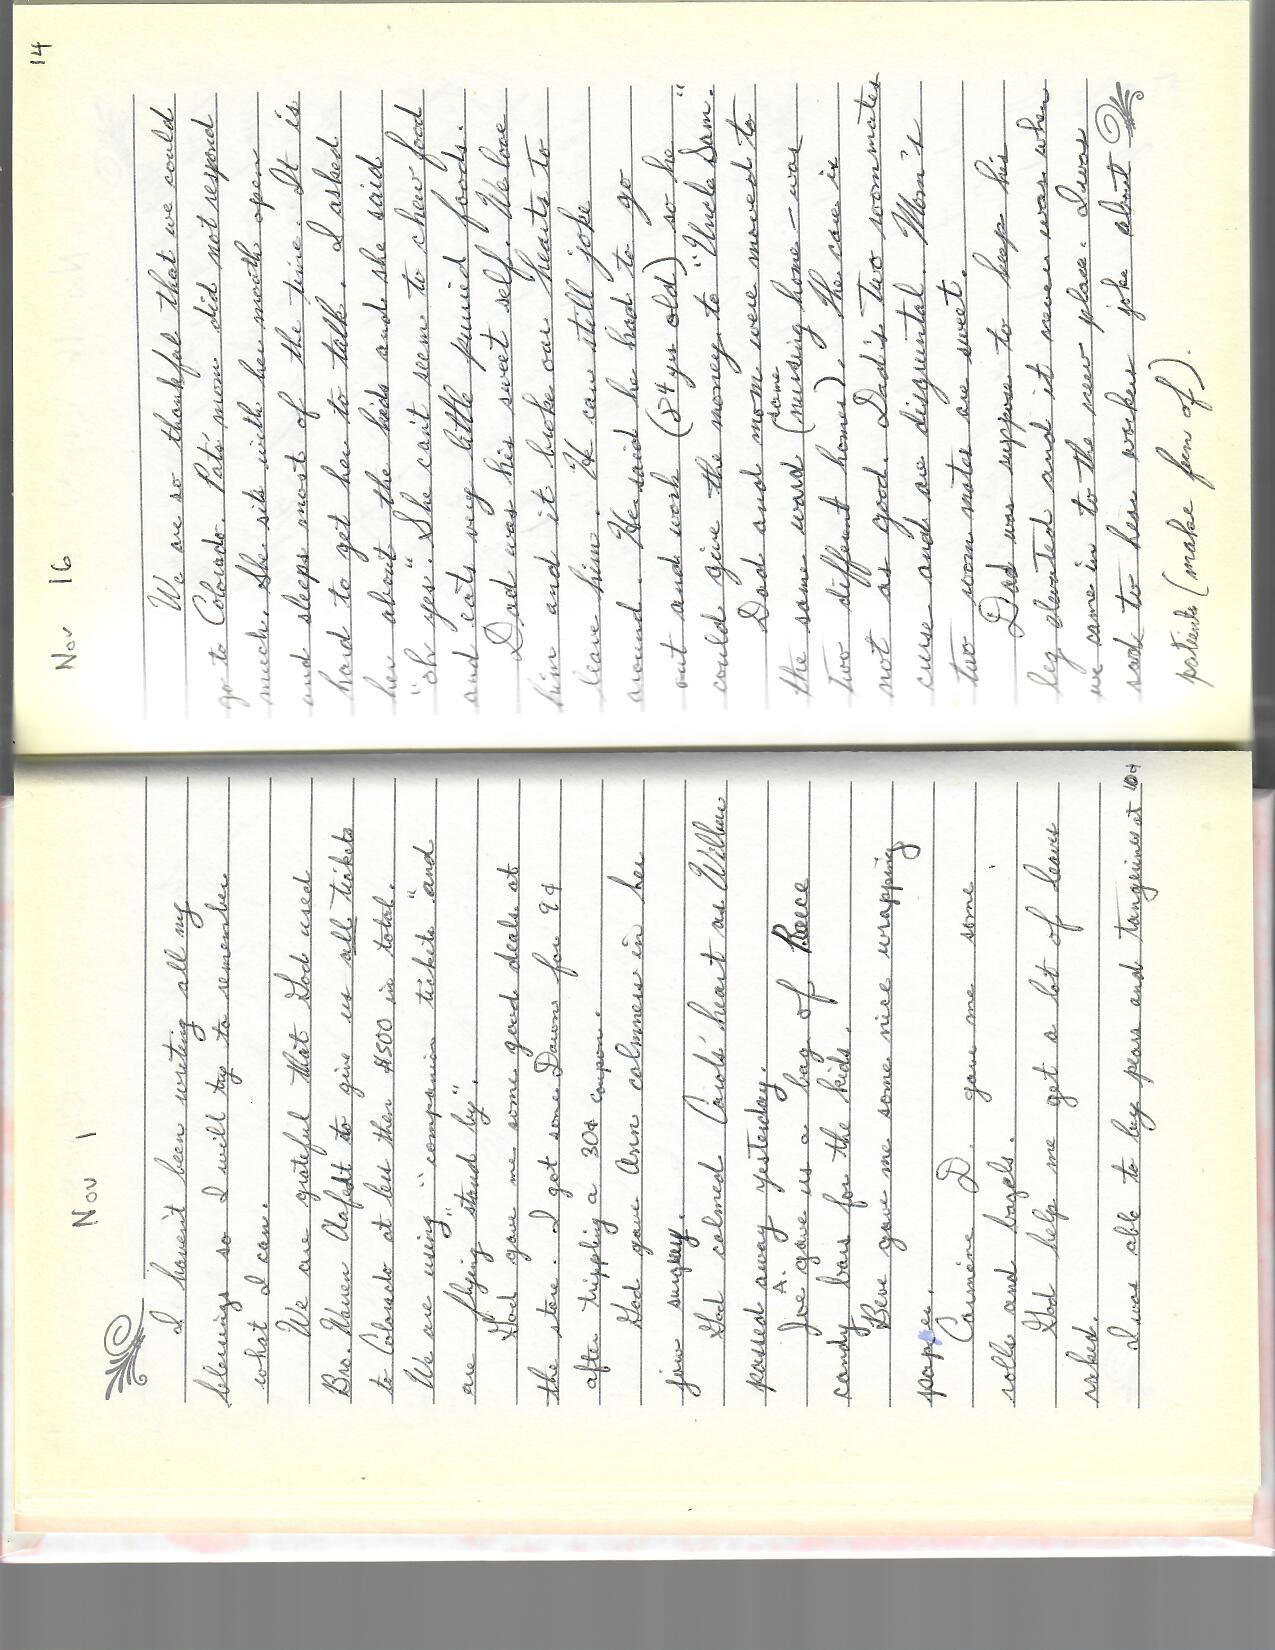 Nov 1
I haven't been writing all my
blessings so I will try to remember
what I can.
We are grateful that God used
Bro. Haven to give us all tickets
to Colorado at less then $500 in total.
We are using "companion tickets" and
are flying "stand by".
God gave me some good deals at
the store. I got some Dawn for 9¢
after trippling a 30¢ coupon.
God gave Ann calmness in her
jaw surgery.
God calmed Carols' heart as Wilbur
passed away yesterday.
Joe A. gave us a bag of Reece
candy bars for the kids.
Beve gave me some nice wrapping
paper.
Carmine D. gave me some
rolls and bagels.
God help me get a lot of leaves
raked.
I was able to buy pears and tangerines at 10¢
14
Nov 16
We are so thankful that we could
go to Colorado. Pats' mom did not respond
much. She sits with her mouth open
and sleeps most of the time. It is
hard to get her to talk. I asked
her about the kids and she said
"oh yes". She can't seem to chew food
and eats very little puried foods.
Dad was his sweet self. We love
him and it broke our hearts to
leave him. He can still joke
around. He said he had to go
out and work (84 yrs old) so he
could give the money to "Uncle Sam."
Dad and mom were moved to
the same ward (same nursing home - was
two different homes). The care is
not as good. Dad's two roommates
curse and are disgruntal. Mom's
two room mates are sweet.
Dad was suppose to keep his
leg elevated and it never was when
we came in to the new place. I was
sad to hear workers joke about
patients (make fun of).